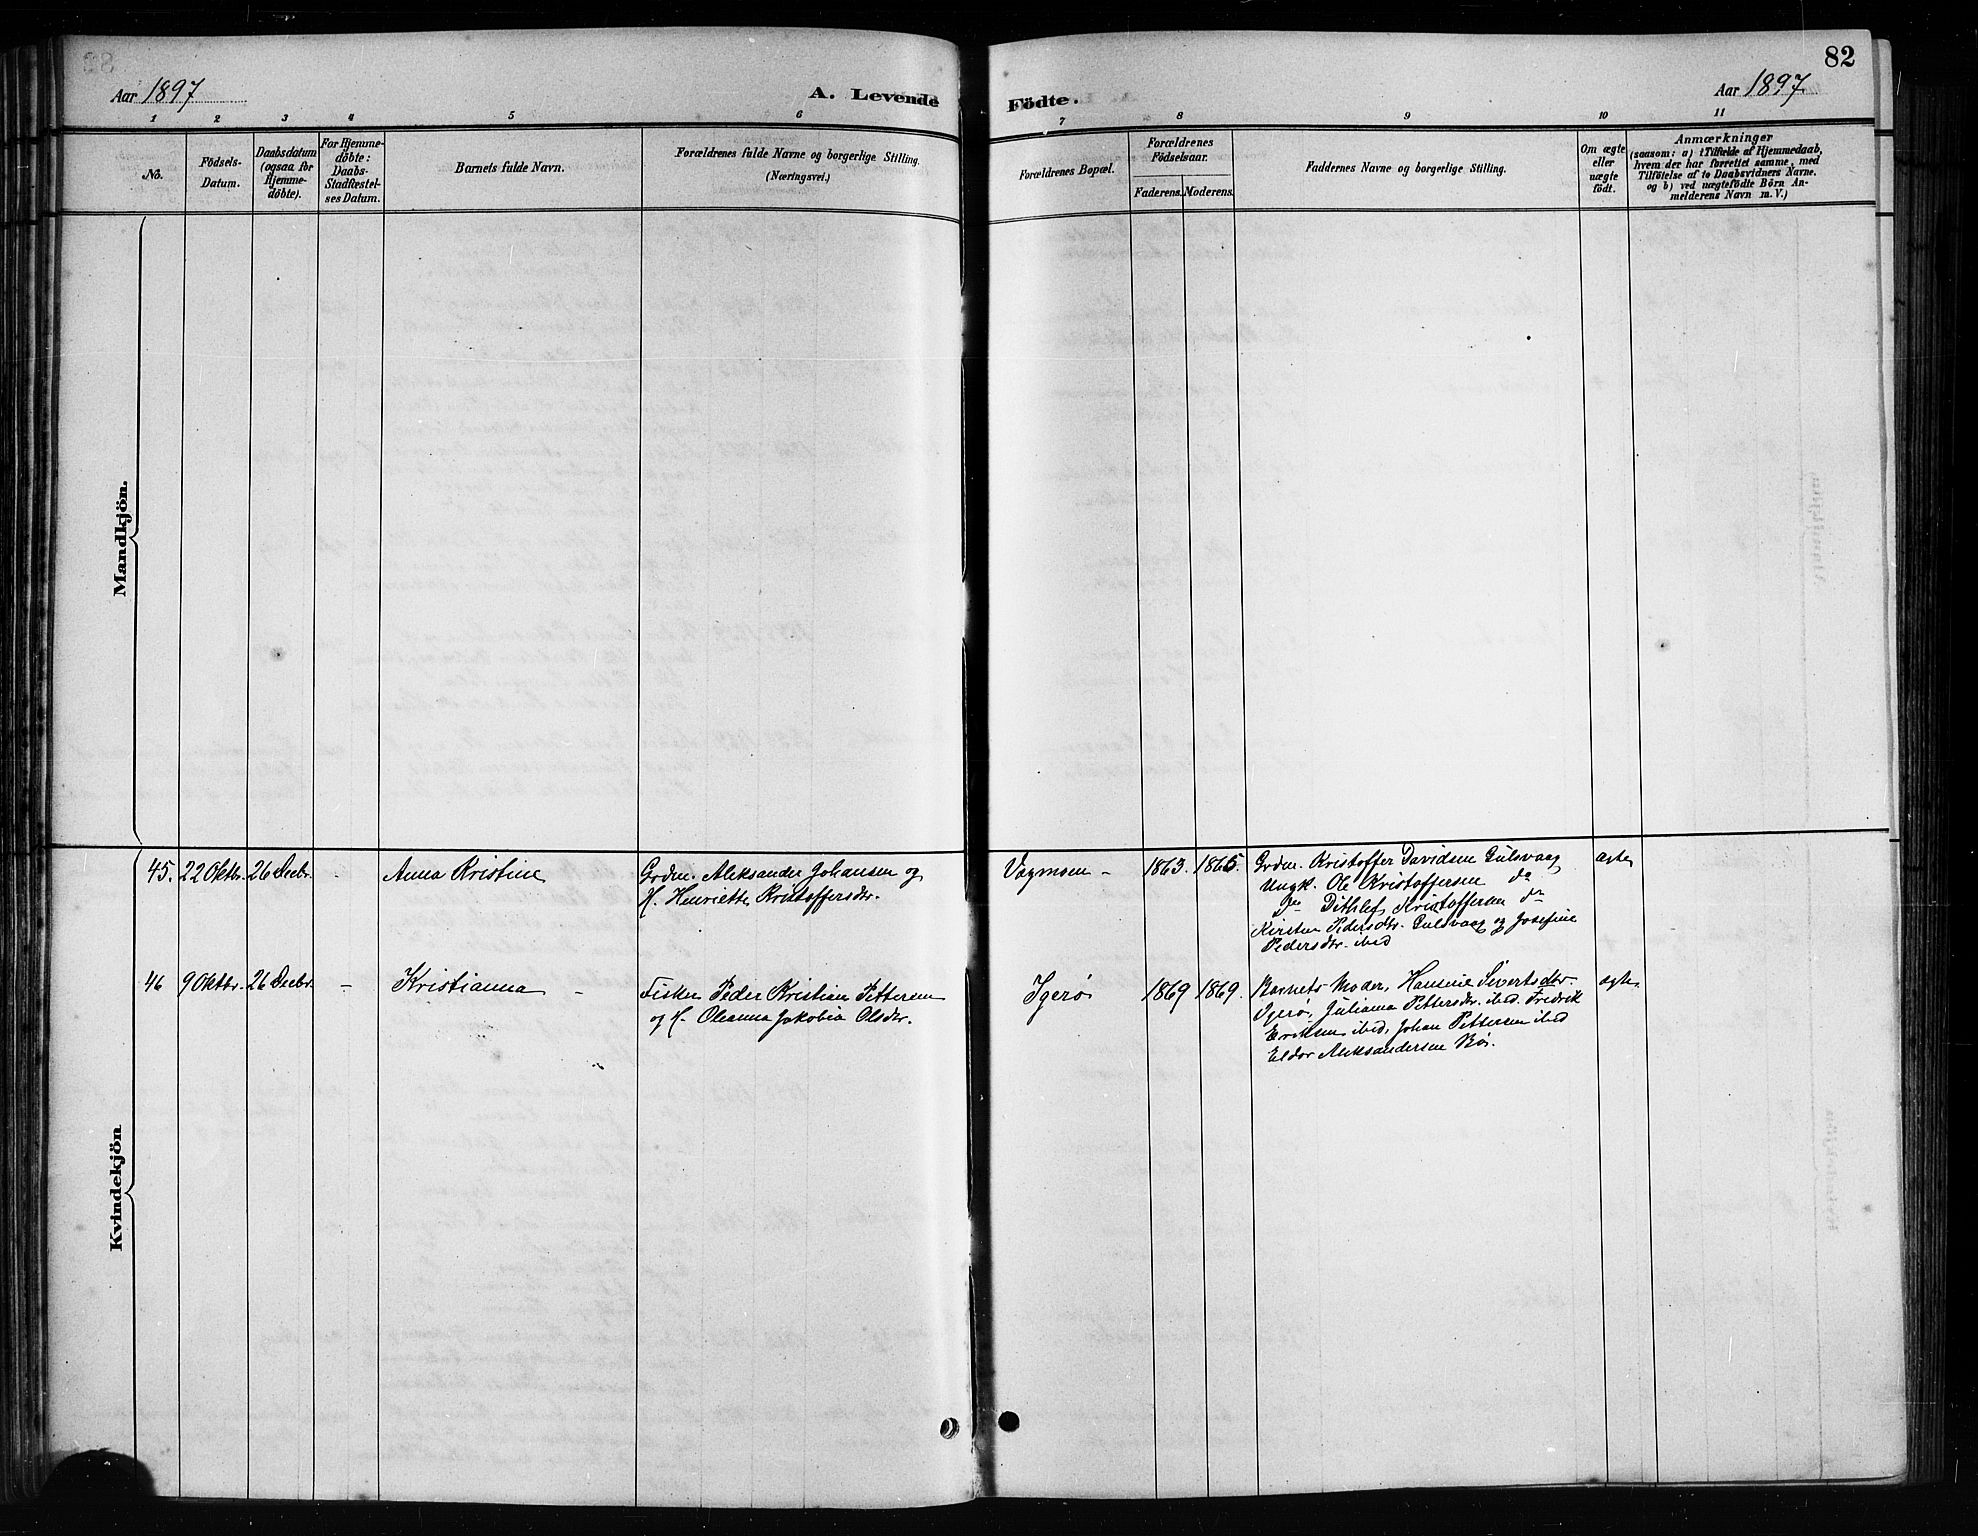 82
Aar 1897
A. Levende
Födte.
Aar 1897
1 2 3 4 5 6 7 8 9 10 11
No.
Födsels-
Datum.
Daabsdatum
(ogsaa for
Hjemme-
döbte).
For Hjemme-
döbte:
Daabs-
Stadfæstel-
ses Datum.
Barnets fulde Navn.
Forældrenes fulde Navne og borgerlige Stilling.
(Næringsvei.)
Forældrenes Bopæl.
Forældrenes
Födselsaar.
Faderens. Moderens.
Faddernes Navne og borgerlige Stilling.
Om ægte
eller
uægte
födt.
Anmærkninger
(saasom: a) i Tilfælde af Hjemmedaab,
hvem der har forrettet samme, med
Tilföielse af to Daabsvidners Navne.
og b) ved uægtefödte Börn An-
melderens Navn m.V.)
Mandkjön.
Kvindekjön
45. 22 Oktbr. 26 Decbr. -
Anna Kristine
Grdm. Aleksander Johansen og
H. Henriette Kristoffersdtr.
Vagmsem -
1863. 1865.
Grdm. Kristoffer Davidsen Gulsvaag
Ungk. Ole Kristoffersen do
Do Dithlef Kristoffersen do
Kirsten Pedersdtr. Gulsvaag og Josefine
Pedersdtr. ibid
ægte
46 9 Oktbr. 26 Decbr. -
Kristianna -
Fisker Peder Kristian Pettersen
og H. Oleanna Jakobia Olsdtr.
Igerø
1869 1869.
Barnets Moder, Hansine Sivertsdtr.
Igerø, Juliana Pettersdtr. ibid. Fredrik
Eriksen ibid, Johan Pettersen ibid
Eldor Aleksandersen Bø.
ægte